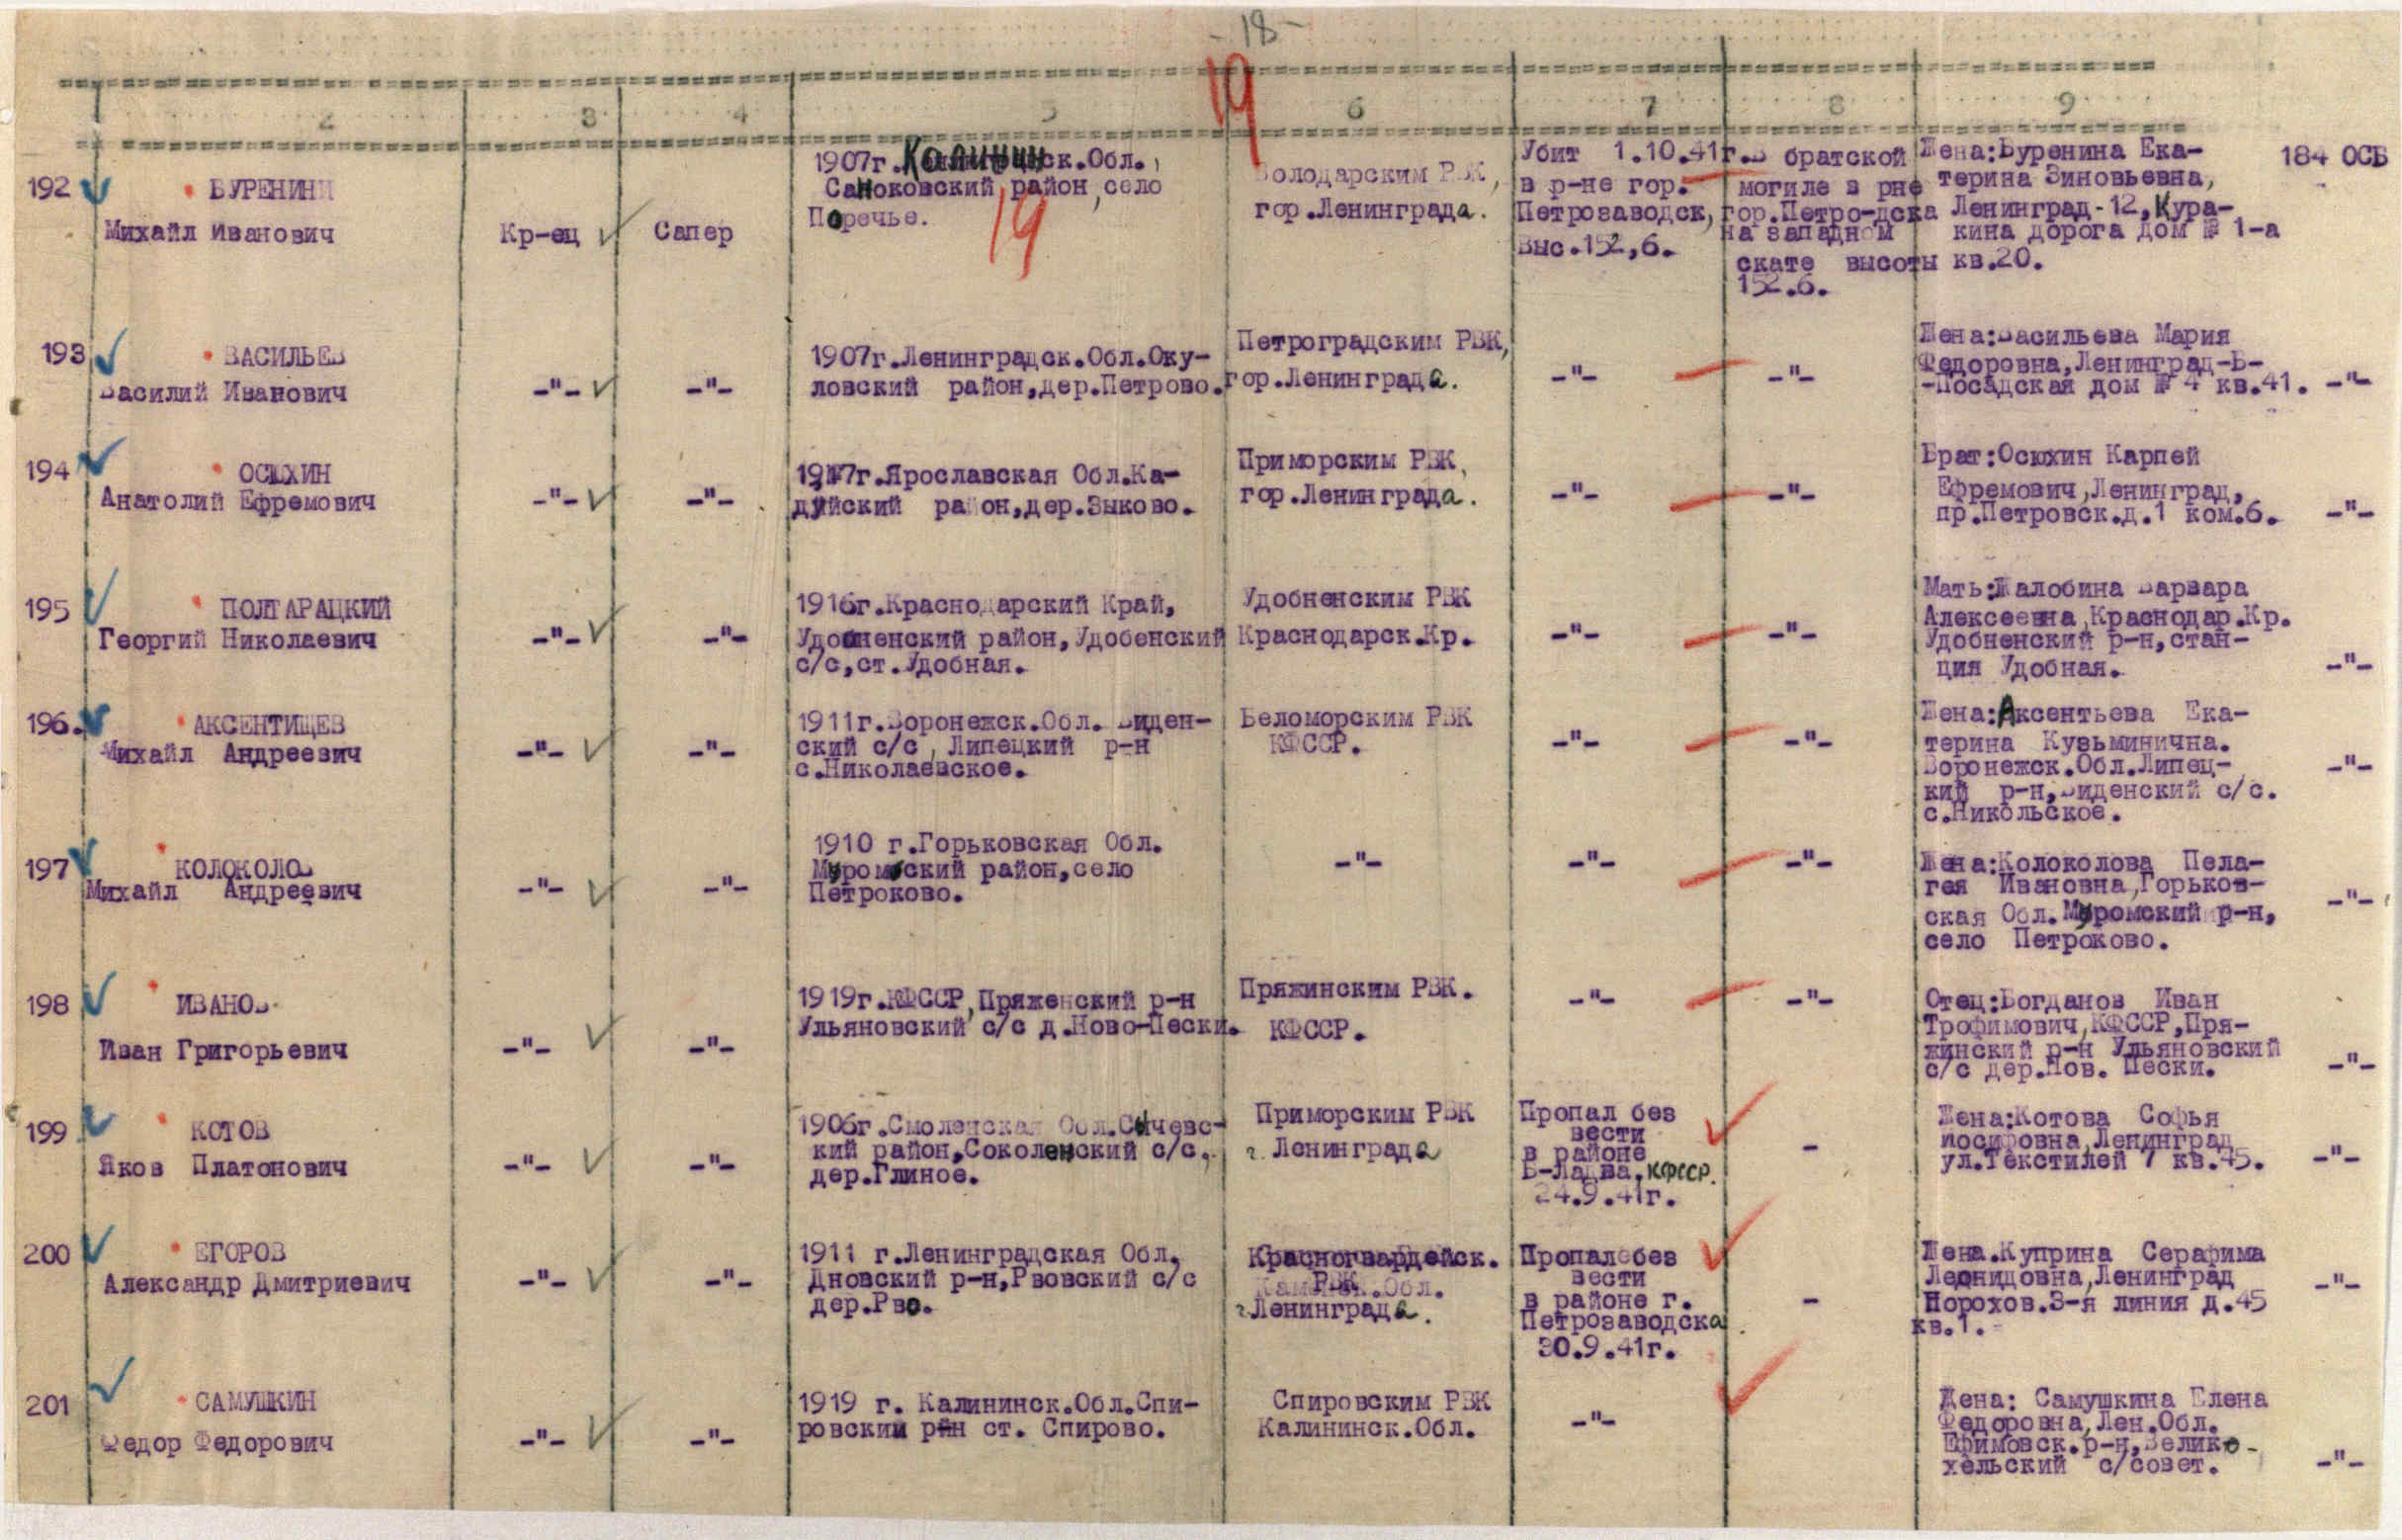 - 18 -
19
2 3 4 5 6 7 8 9
192
БУРЕНИН
Михайл Иванович
Кр-ец
Сапер
1907г. Калининск.Обл.,
Сандоковский район, село
Поречье.
19
Володарским РВК,
гор.Ленинграда.
Убит 1.10.41г.
в р-не гор.
Петрозаводск,
Выс.152,6.
В братской
могиле в рне
гор.Петро-дска
на западном
скате высоты
152.6.
Жена:Буренина Ека-
терина Зиновьевна,
Ленинград-12,Кура-
кина дорога дом № 1-а
кв.20.
184 ОСБ
193
ВАСИЛЬЕВ
Василий Иванович
-"-
-"-
1907г.Ленинградск.Обл.Оку-
ловский район,дер.Петрово.
Петроградским РВК,
гор.Ленинграда.
-"-
-"-
Жена:Васильева Мария
Федоровна,Ленинград-Б-
-Посадская дом № 4 кв.41.
-"-
194
ОСЮХИН
Анатолий Ефремович
-"-
-"-
1917г.Ярославская Обл.Ка-
дуйский район,дер.Зыково.
Приморским РВК,
гор.Ленинграда.
-"-
-"-
Брат:Осюхин Карпей
Ефремович,Ленинград,
пр.Петровск.д.1 ком.6.
-"-
195
ПОЛТАРАЦКИЙ
Георгий Николаевич
-"-
-"-
1916г.Краснодарский Край,
Удобненский район,Удобенский
с/с,ст.Удобная.
Удобненским РВК
Краснодарск.Кр.
-"-
-"-
Мать:Жалобина Варвара
Алексеевна,Краснодар.Кр.
Удобненский р-н,стан-
ция Удобная.
-"-
196.
АКСЕНТИЩЕВ
Михайл Андреевич
-"-
-"-
1911г.Воронежск.Обл. Виден-
ский с/с, Липецкий р-н
с.Николаевское.
Беломорским РВК
КФССР.
-"-
-"-
Жена:Аксентьева Ека-
терина Кузьминична.
Воронежск.Обл.Липец-
кий р-н,Виденский с/с.
с.Никольское.
-"-
197
КОЛОКОЛОВ
Михайл Андреевич
-"-
-"-
1910 г.Горьковская Обл.
Муромский район,село
Петроково.
-"-
-"-
-"-
Жена:Колоколова Пела-
гея Ивановна,Горьков-
ская Обл.Муромский р-н,
село Петроково.
-"-
198
ИВАНОВ
Иван Григорьевич
-"-
-"-
1919г.КФССР,Пряженский р-н
Ульяновский с/с д.Ново-Пески.
Пряжинским РВК.
КФССР.
-"-
-"-
Отец:Богданов Иван
Трофимович,КФССР,Пря-
жинский р-н Ульяновский
с/с дер.Нов. Пески.
-"-
199
КОТОВ
Яков Платонович
-"-
-"-
1906г.Смоленская Обл.Сычевс-
кий район,Соколенский с/с,
дер.Глиное.
Приморским РВК
г. Ленинграда
Пропал без
вести
в районе
Б-Ладва,КФССР.
24.9.41г.
-
Жена:Котова Софья
Иосифовна,Ленинград
ул.Текстилей 7 кв.45.
-"-
200
ЕГОРОВ
Александр Дмитриевич
-"-
-"-
1911 г.Ленинградская Обл.
Дновский р-н,Рвовский с/с
дер.Рво.
Красногвардейск.
РВК
г.Ленинграда.
Пропал без
вести
в районе г.
Петрозаводска
30.9.41г.
-
Жена.Куприна Серафима
Леонидовна,Ленинград
Порохов.3-я линия д.45
кв.1.
-"-
201
САМУШКИН
Федор Федорович
-"-
-"-
1919 г. Калининск.Обл.Спи-
ровский р-н ст. Спирово.
Спировским РВК
Калининск.Обл.
-"-
Жена: Самушкина Елена
Федоровна,Лен.Обл.
Ефимовск.р-н,Велико-
хельский с/совет.
-"-